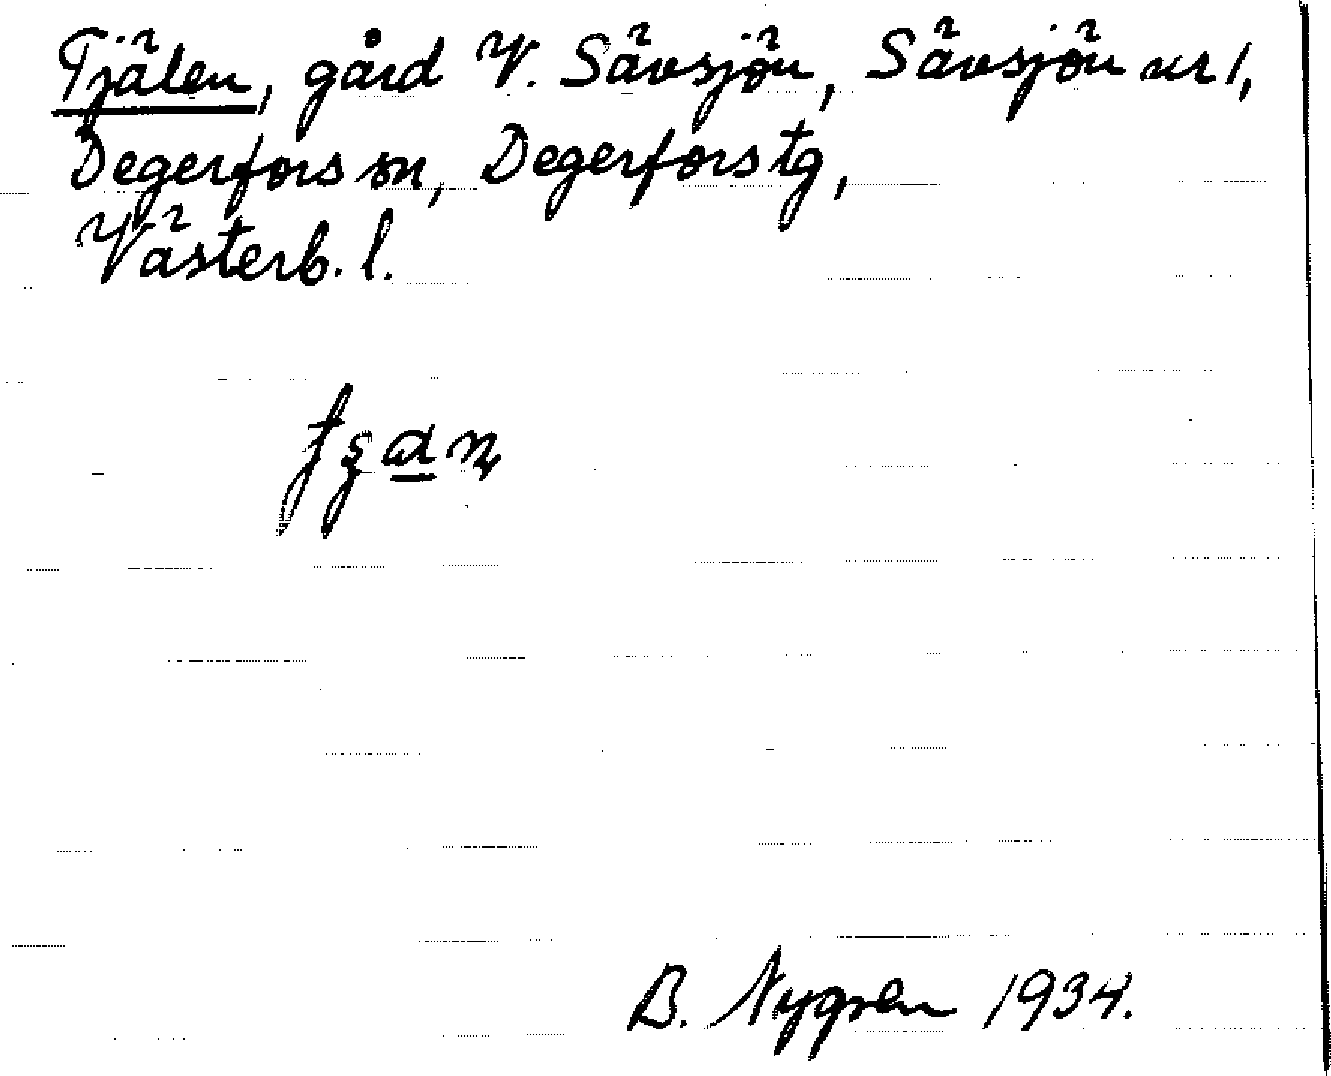 Tjälen, gård V. Sävsjön, Sävsjön nr 1,
Degerfors sn, Degerfors tg,
Västerb. l.
B. Nygren 1934.